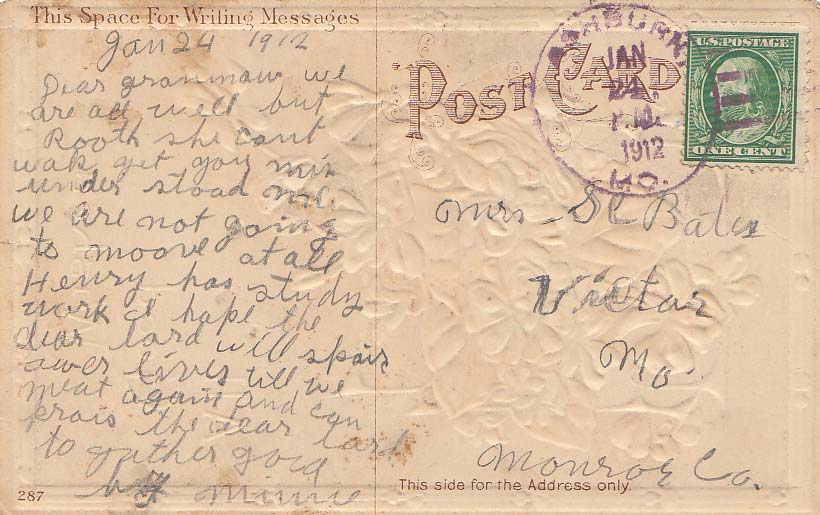 This Space For Writing Messages
Jan 24 1912
Dear granmaw we
are all well but
Rooth she cant
walk yet you mis
under stoad me
we are not going
to moove at all
Henry has study
work I hope the
dear lard will spair
awer lives till we
meat again and can
prais the dear lard
to gather good
by Minnie
287
POST CARD
JAN
24
P.M.
1912
MO.
U.S. POSTAGE
ONE CENT
Mrs Bates
Victor
Mo
Monroe Co.
This side for the Address only.